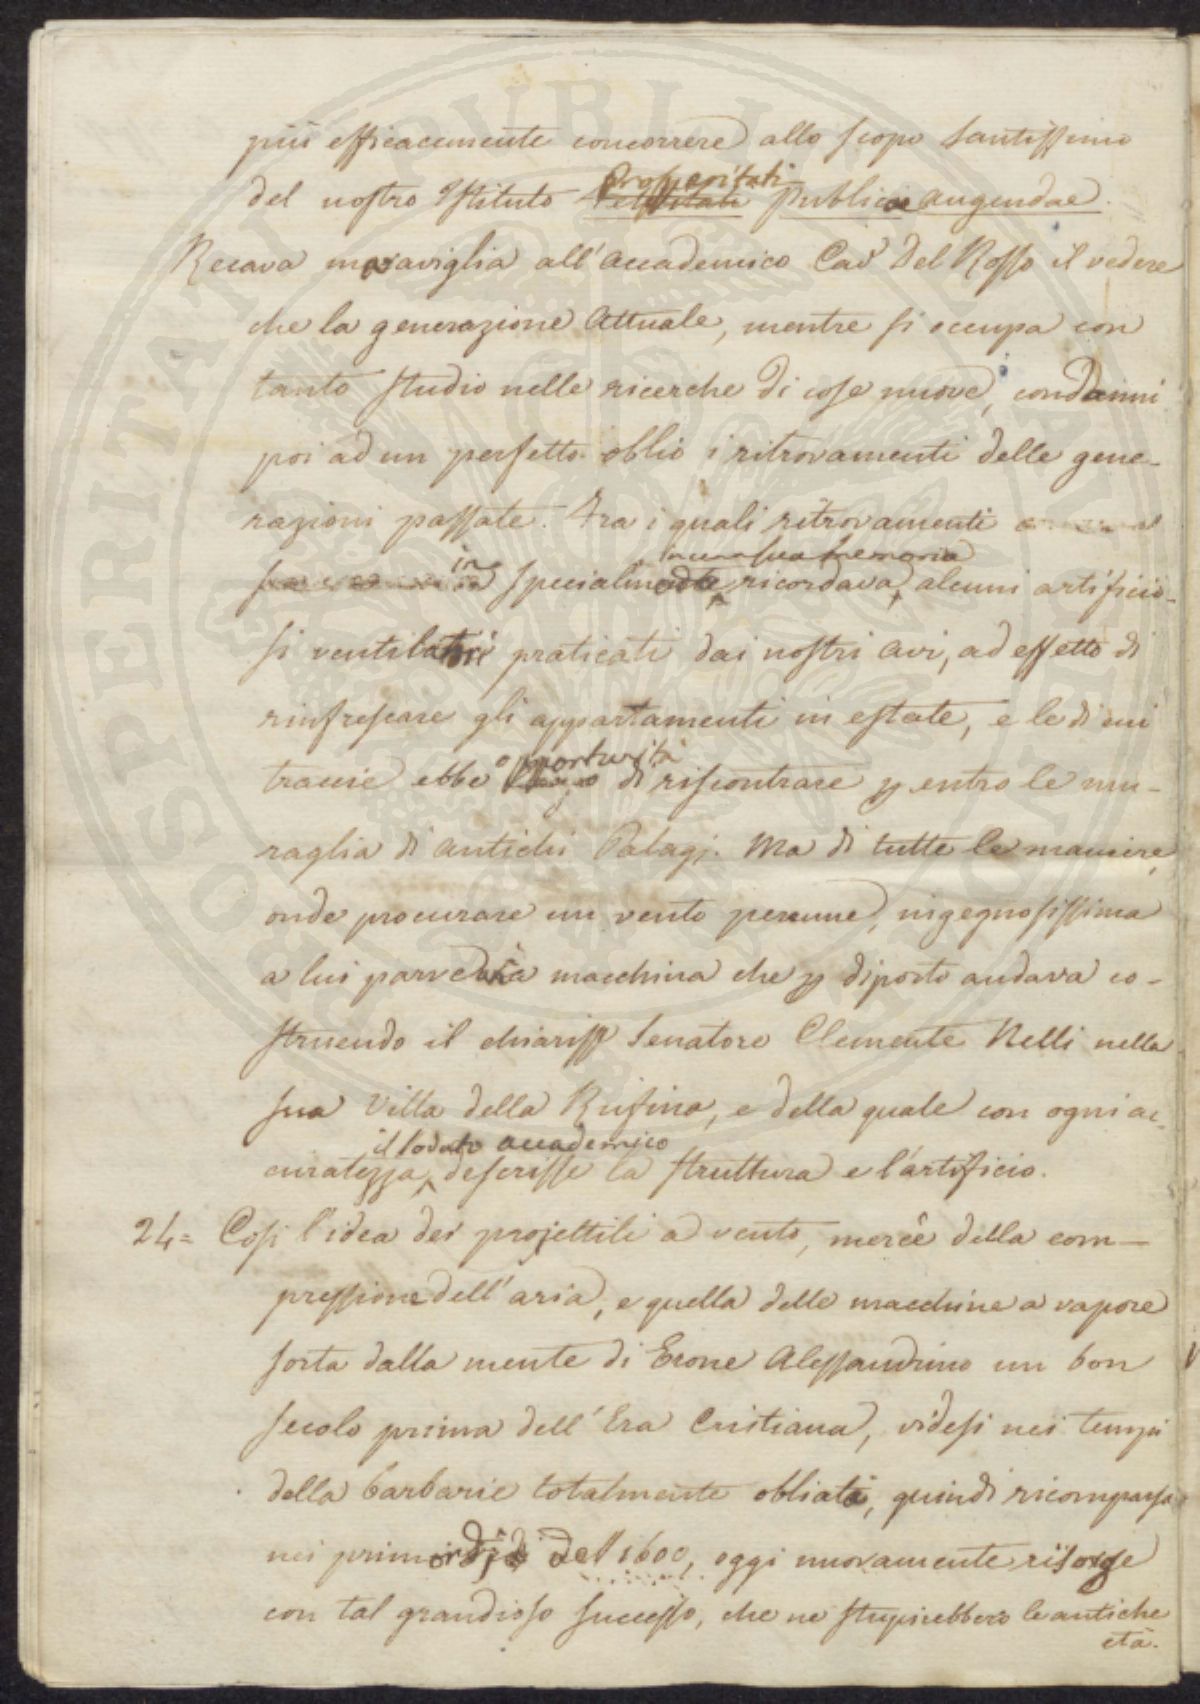 più efficacemente concorrere allo scopo santissimo
prosperitati
del nostro Istituto publicae augendae.
Recava maraviglia all'accademico Cav. Del Rosso il vedere
che la generazione attuale, mentre si occupa con
tanto studio nelle ricerche di cose nuove, condanni
poi ad un perfetto oblio i ritrovamenti delle gene-
razioni passate. Fra i quali ritrovamenti
in una sua memoria
in specialmodo ricordava, alcuni artificio-
si ventilatori praticati dai nostri avi, ad effetto di
rinfrescare gli appartamenti in estate, e le di cui
opportunità
traccie ebbe di riscontrare p. entro le mu-
raglia di antichi Palagj. Ma di tutte le maniere,
onde procurare un vento perenne, ingegnosissima
a lui parve la macchina che p. diporto andava co-
struendo il chiariss. Senatore Clemente Nelli nella
sua Villa della Rufina, e della quale con ogni ac-
il lodato accademico
curatezza, descrisse la struttura e l'artificio.
24= Così l'idea dei projettili a vento, mercê della com-
pressione dell'aria, e quella delle macchine a vapore
sorta dalla mente di Erone Alessandrino un bon
secolo prima dell'Era Cristiana, videsi nei tempi
della barbarie totalmente obliata, quindi ricomparsa
nei primordj del 1600, oggi nuovamente risorge
con tal grandioso successo, che ne stupirebbero le antiche
età.
PROSPERITATI PUBLICAE AUGENDAE